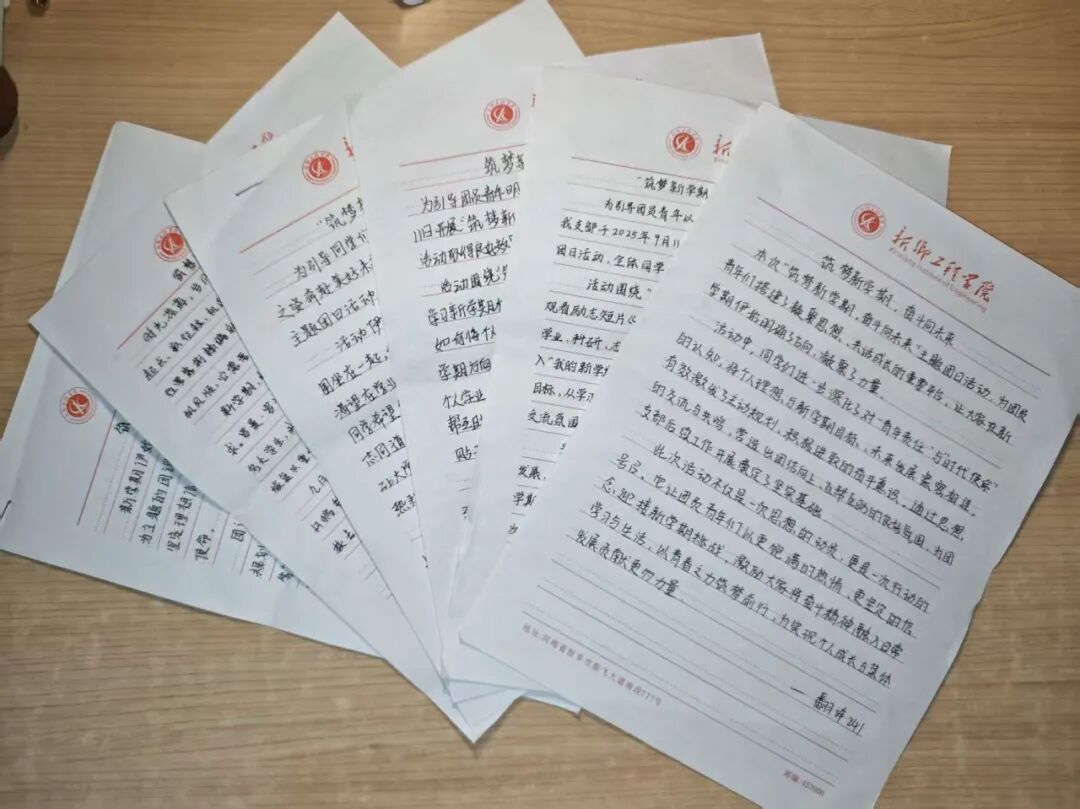 新乡工程学院
Xinxiang Institute of Engineering
筑梦新学期，奋斗向未来
本次“筑梦新学期，奋斗向未来”主题团日活动，为团员
青年们搭建了凝聚思想、共话成长的重要平台，让大家在新
学期伊始明确了方向，凝聚了力量。
活动中，同学们进一步深化了对“青年责任”与“时代使命”
的认知，将个人理想与新学期目标、未来发展紧密相连，
有效激发了主动规划、积极进取的奋斗意识，通过思想
的交流与共鸣，营造出团结向上、互帮互助的良好氛围，为团
支部后续工作开展奠定了坚实基础。
此次活动不仅是一次思想的动员，更是一次行动的
号召，它让团员青年们以更饱满的热情、更坚定的信
念，迎接新学期挑战，激励大家将奋斗精神融入日常
学习与生活，以青春之力筑梦前行，为实现个人成长与集体
发展贡献更竹力量。
—翻译241
地址:河南省新乡市新飞大道南段777号
邮编:453000
“筑梦新学期
为引导团员青年以
我支部于2025年9月11
团日活动，全体同学
活动围绕“
观看励志短片《
学业、科研、志
入“我的新学期
目标，从学习
交流氛围
发展，
学期
为
筑梦新
为引导团员青年明
11日开展“筑梦新
活动取得良好效
活动围绕“
学习新学期
如何将个人
学期方向
个人学业
帮互助
贴
“筑梦
为引导同学们
之姿奔赴美好未
主题团日活动
活动伊
围坐在一起，
渴望在学业
同学希望
志同道
让大
热
筑梦
时光荏苒，岁
新学期，
九月
新学期伊始
为主题的团
坚定理想信
使命。
团